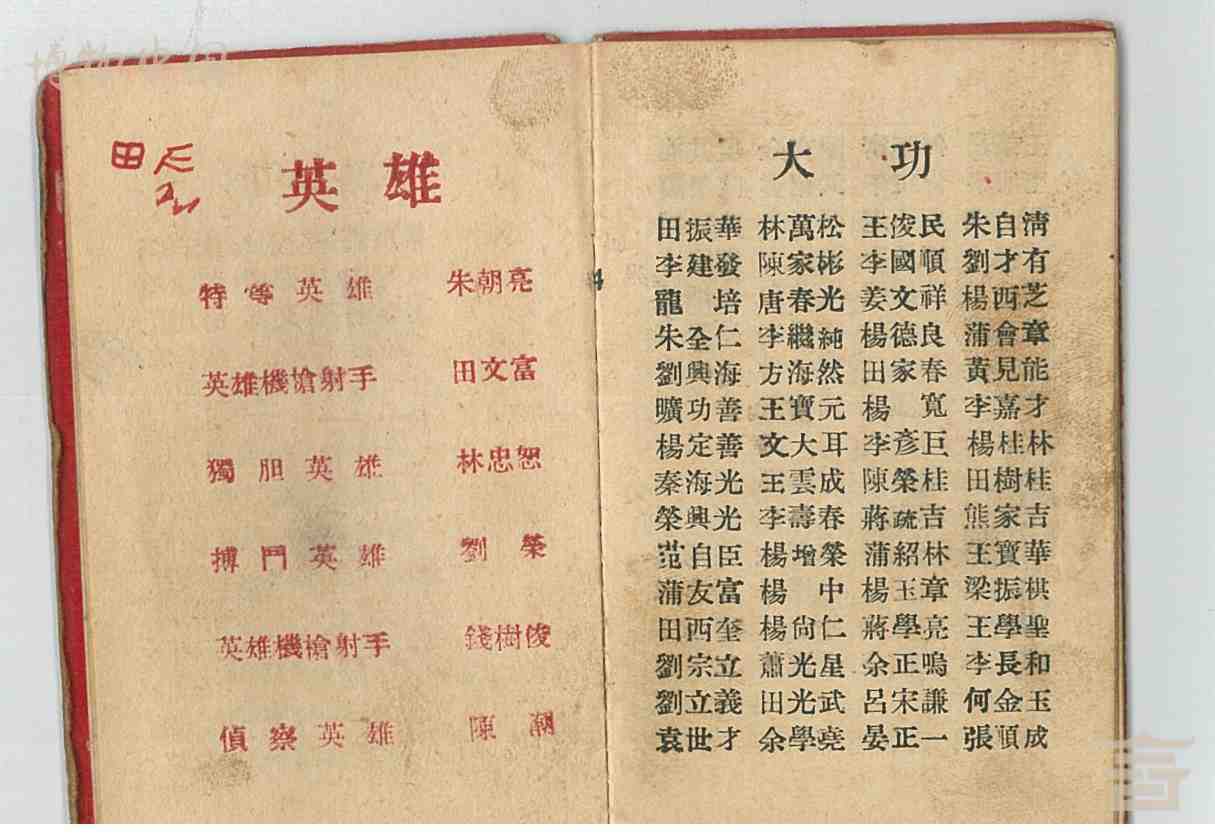 博物中国
田
英雄
特等英雄 朱朝亮
英雄機愴射手 田文富
獨胆英雄 林忠恕
搏鬥英雄 劉榮
英雄機槍射手 錢樹俊
偵察英雄 陳潮
大功
田振華 林萬松 王俊民 朱自淸
李建發 陳家彬 李國順 劉才有
龍培 唐春光 姜文祥 楊西芝
朱全仁 李繼純 楊德良 蒲會章
劉興海 方海然 田家春 黃見能
曠功善 王寶元 楊寬 李嘉才
楊定善 文大耳 李彥巨 楊桂林
秦海光 王雲成 陳榮桂 田樹桂
榮興光 李壽春 蔣疏吉 熊家吉
范自臣 楊增榮 蒲紹林 王寶華
蒲友富 楊中 楊玉章 梁振棋
田西奎 楊尙仁 蔣學亮 王學聖
劉宗立 蕭光星 余正鳴 李長和
劉立義 田光武 呂宋謙 何金玉
袁世才 余學堯 晏正一 張順成